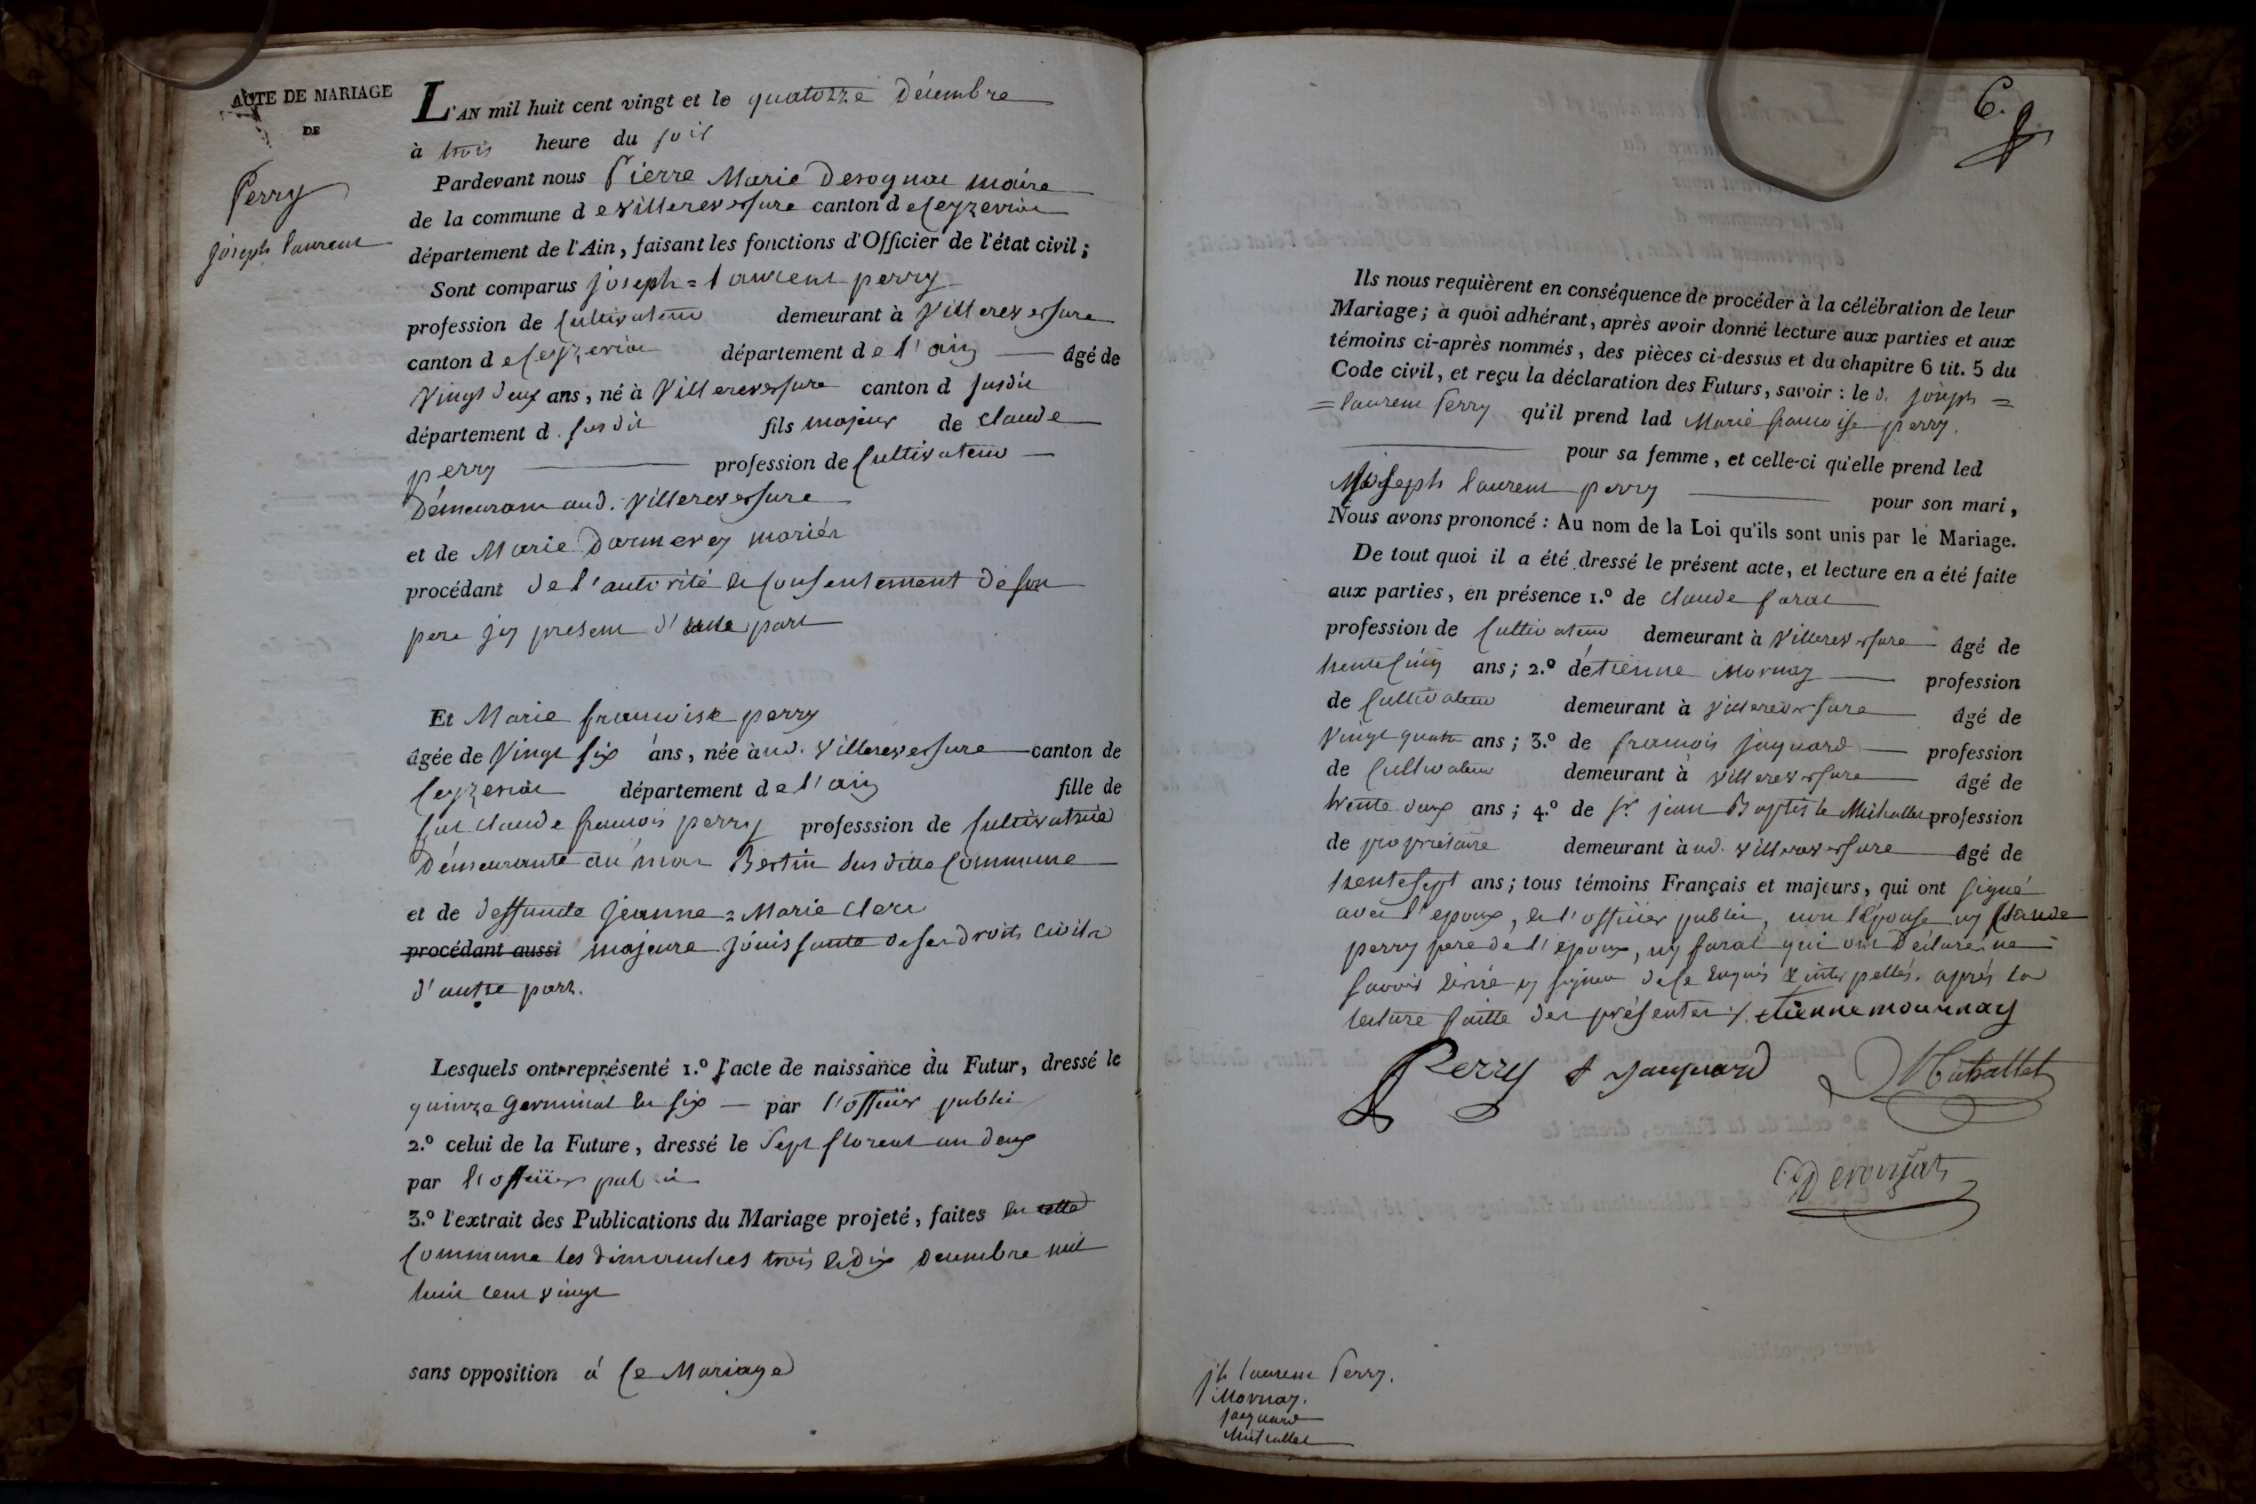 ACTE DE MARIAGE
DE
Perry
joseph laurent
L'AN mil huit cent vingt et le quatorze décembre
à trois heure du soir
Pardevant nous Pierre Marie Derognat maire
de la commune de villereversure canton de Ceyzeriat
département de l'Ain, faisant les fonctions d'Officier de l'état civil;
Sont comparus joseph = laurent perry
profession de Cultivateur demeurant à Villereversure
canton de Ceyzeriat département de l'ain âgé de
vingt deux ans, né à Villereversure canton d susdit
département d. susdit fils majeur de claude
perry profession de Cultivateur
Démeurant aud. villereversure
et de Marie Darmerey mariés
procédant de l'autorité et consentement de son
pere icy present d'une part
Et Marie francoise perry
âgée de vingt six ans, née àud. villereversure canton de
Ceyzeriat département de l'ain fille de
fut claude francois perry professsion de Cultivatrice
Démeurante au mas Bertin susditte Commune
et de deffunte jeanne = Marie clerc
procédant aussi majeure jouissante de ses droits civils
d'autre part.
Lesquels ont représenté 1.º l'acte de naissance du Futur, dressé le
quinze germinal an six — par l'officier public
2.º celui de la Future, dressé le sept floreal an deux
par l'officier public
3.º l'extrait des Publications du Mariage projeté, faites en cette
Commune les dimanches trois et dix decembre mil
huit cent vingt
sans opposition à ce Mariage
6.
Ils nous requièrent en conséquence de procéder à la célébration de leur
Mariage; à quoi adhérant, après avoir donné lecture aux parties et aux
témoins ci-après nommés, des pièces ci-dessus et du chapitre 6 tit. 5 du
Code civil, et reçu la déclaration des Futurs, savoir : le d. joseph =
= laurent Perry qu'il prend lad Marie francoise perry.
pour sa femme, et celle-ci qu'elle prend led
joseph laurent perry pour son mari,
Nous avons prononcé : Au nom de la Loi qu'ils sont unis par le Mariage.
De tout quoi il a été dressé le présent acte, et lecture en a été faite
aux parties, en présence 1.º de claude farat
profession de Cultivateur demeurant à villereversure âgé de
trente cinq ans; 2.º détienne Mornay profession
de Cultivateur demeurant à villereversure âgé de
vingt quatre ans; 3.º de francois jaquard profession
de Cultivateur demeurant à villereversure âgé de
trente deux ans; 4.º de Sr. jean Baptiste Michallet profession
de propriétaire demeurant àud. villereversure âgé de
trente sept ans; tous témoins Français et majeurs, qui ont signé
avec l'epoux, et l'officier public, non l'épouse ny Claude
perry pere de l'epoux, ny farat qui ont déclaré ne
savoir écrire ny signer de ce enquis & interpellés. après la
lecture faitte des présentes ./. etienne mournay
Perry f Jacquard Michallet
Derognat
jh laurent Perry.
Mornay.
jacquard
Michallet